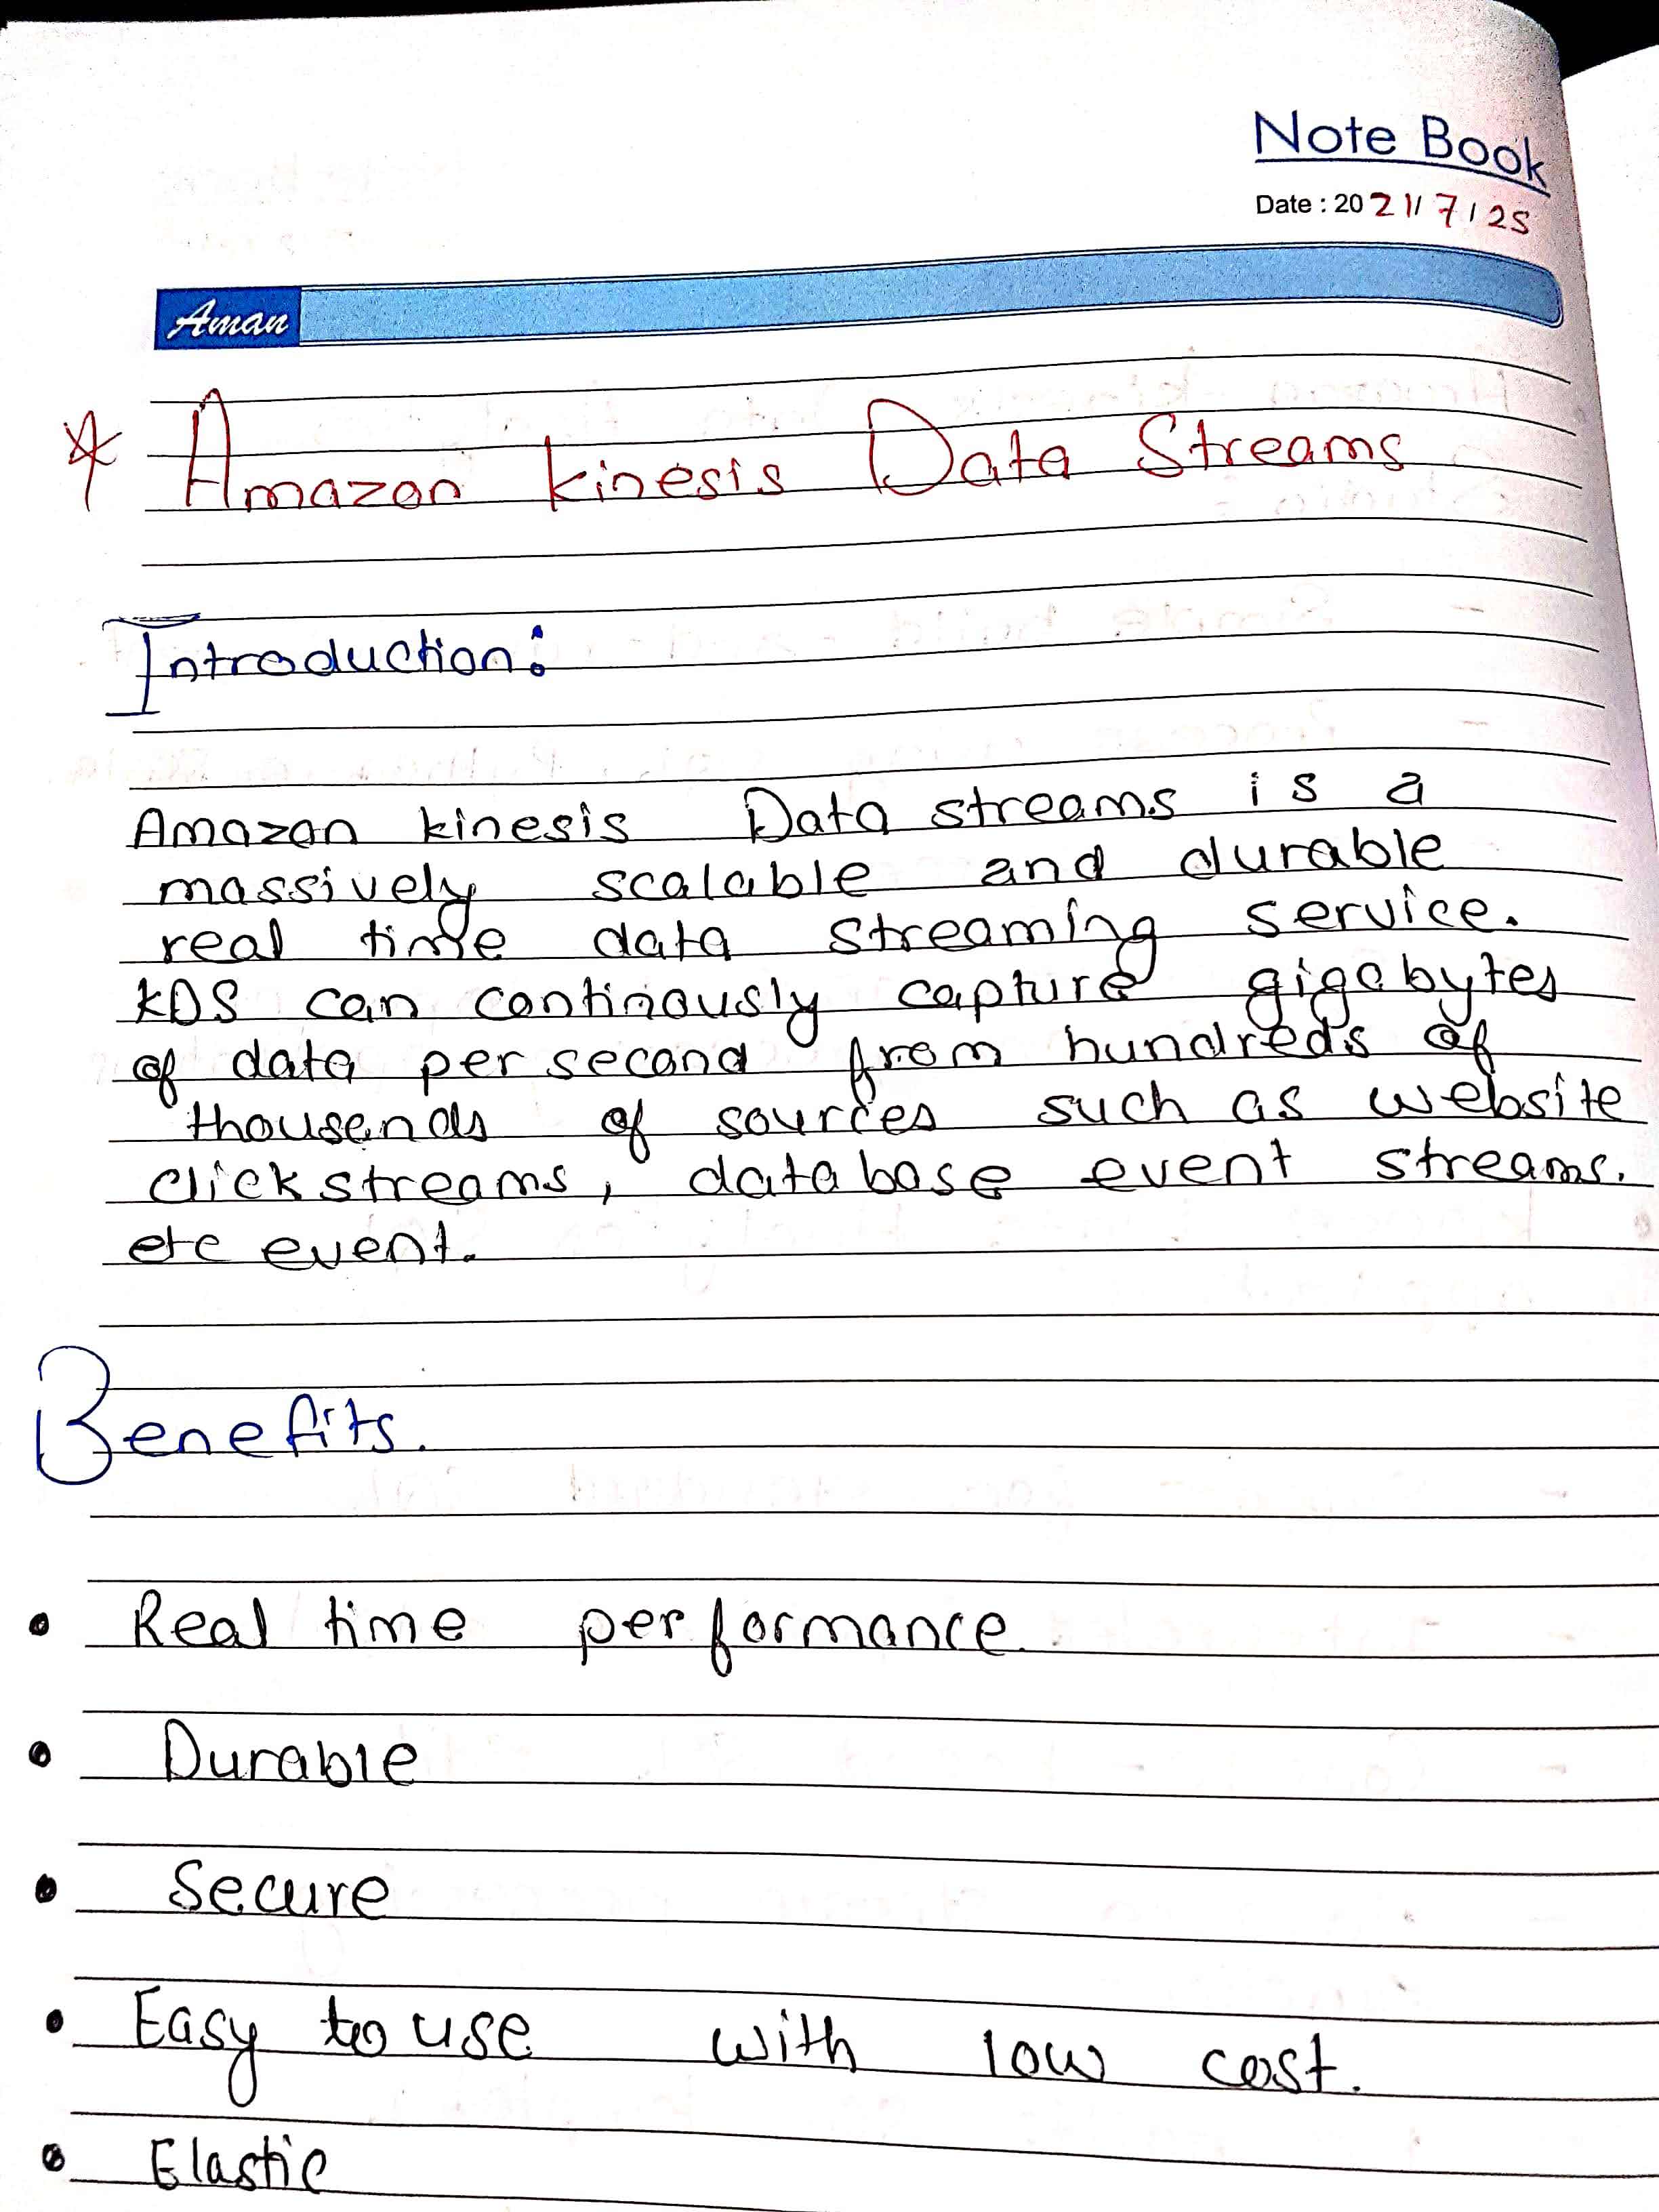 Note Book
Date : 2021/7/25
Aman
* Amazon kinesis Data Streams
Introduction:
Amazon kinesis Data streams is a
massively scalable and durable
real time data streaming service.
KDS can continously capture gigabytes
of data per second from hundreds of
thousands of sources such as website
clickstreams, database event streams.
etc event.
Benefits.
• Real time performance.
• Durable
• Secure
• Easy to use with low cost.
• Elastic